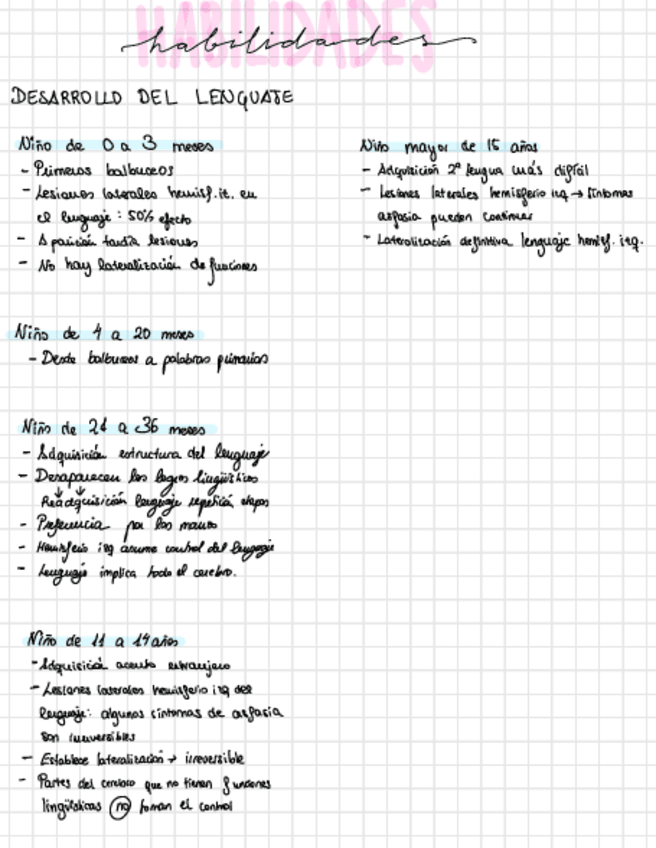 HABILIDADES
habilidades
DESARROLLO DEL LENGUAJE
Niño de 0 a 3 meses
- Primeros balbuceos
- Lesiones laterales hemisf. it. en
el lenguaje : 50% efecto
- Aparición tardía lesiones
- No hay lateralización de funciones
Niño de 4 a 20 meses
- Desde balbuceos a palabras primarias
Niño de 21 a 36 meses
- Adquisición estructura del lenguaje
- Desaparecen los logros lingüísticos
Readquisición lenguaje repetición etapas
- Preferencia por las manos
- Hemisferio izq asume control del lenguaje
- Lenguaje implica todo el cerebro.
Niño de 11 a 14 años
- Adquisición acento extranjero
- Lesiones laterales hemisferio izq del
lenguaje: algunos síntomas de asfasia
son irreversibles
- Establece lateralización → irreversible
- Partes del cerebro que no tienen funciones
lingüísticas no toman el control
Niño mayor de 15 años
- Adquisición 2ª lengua más difícil
- Lesiones laterales hemisferio izq → síntomas
asfasia pueden continuar
- Lateralización definitiva lenguaje hemisf. izq.